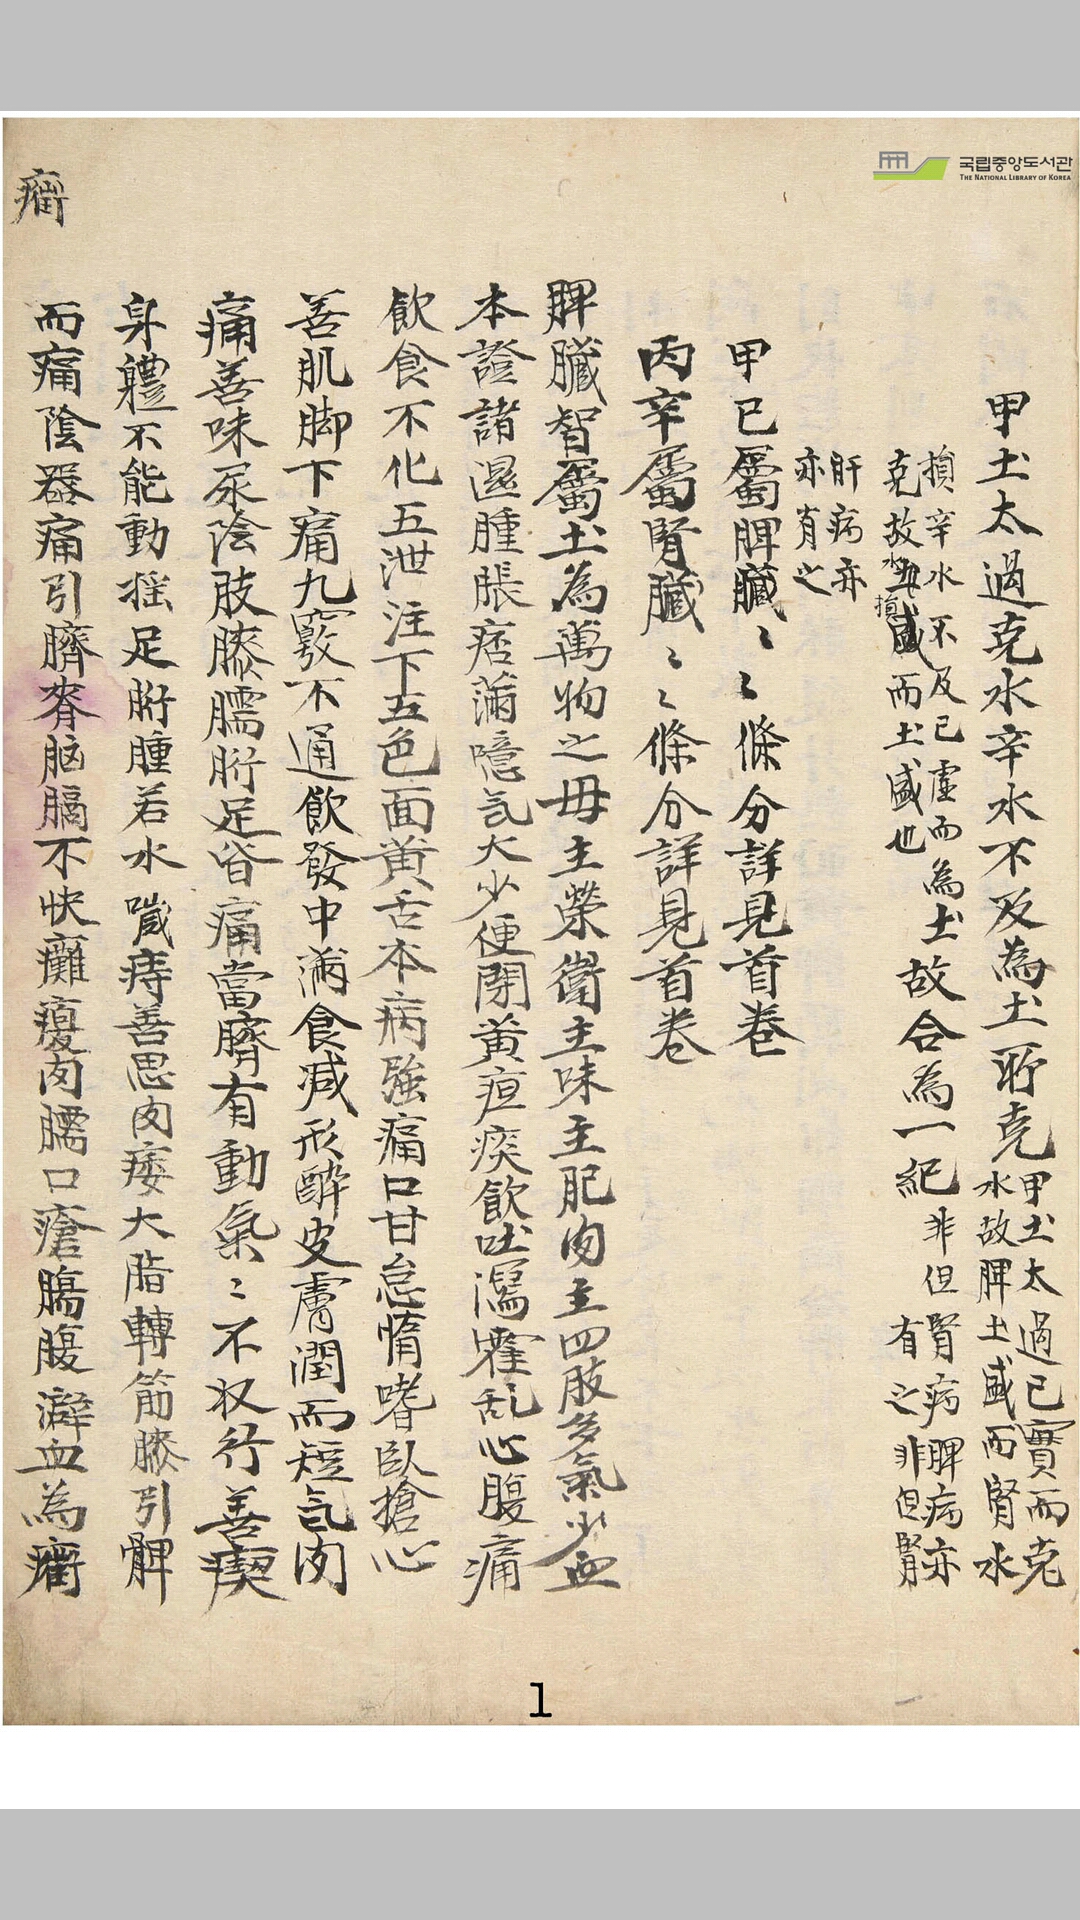 국립중앙도서관
THE NATIONAL LIBRARY OF KOREA
甲土太過克水辛水不及為土所克甲土太過已實而克水故脾土盛而腎水
損辛水不及已虛而為土克故水損而土盛也故合為一紀非但腎病脾病亦有之非但腎
肝病亦亦有之
甲己屬脾臟〻〻條分詳見首卷
丙辛屬腎臟〻〻條分詳見首卷
脾臟智屬土為萬物之母主榮衛主味主肥肉主四肢多氣少血
本證諸濕腫脹痞滿噫氣大少便閉黃疸痰飲吐瀉霍乱心腹痛
飲食不化五泄注下五色面黃舌本病強痛口甘怠惰嗜臥搶心
善肌脚下痛九竅不通飲發中滿食减形醉皮膚潤而短气肉
痛善味尿陰肢膝臑胻足皆痛當臍有動氣〻不收行善瘈
身軆不能動揺足胻腫若水嵗痔善思肉痿大脂轉筋膝引髀
而痛陰器痛引臍脊脳膈不快癱瘦肉臑口瘡腸腹澼血為癇
癇
1